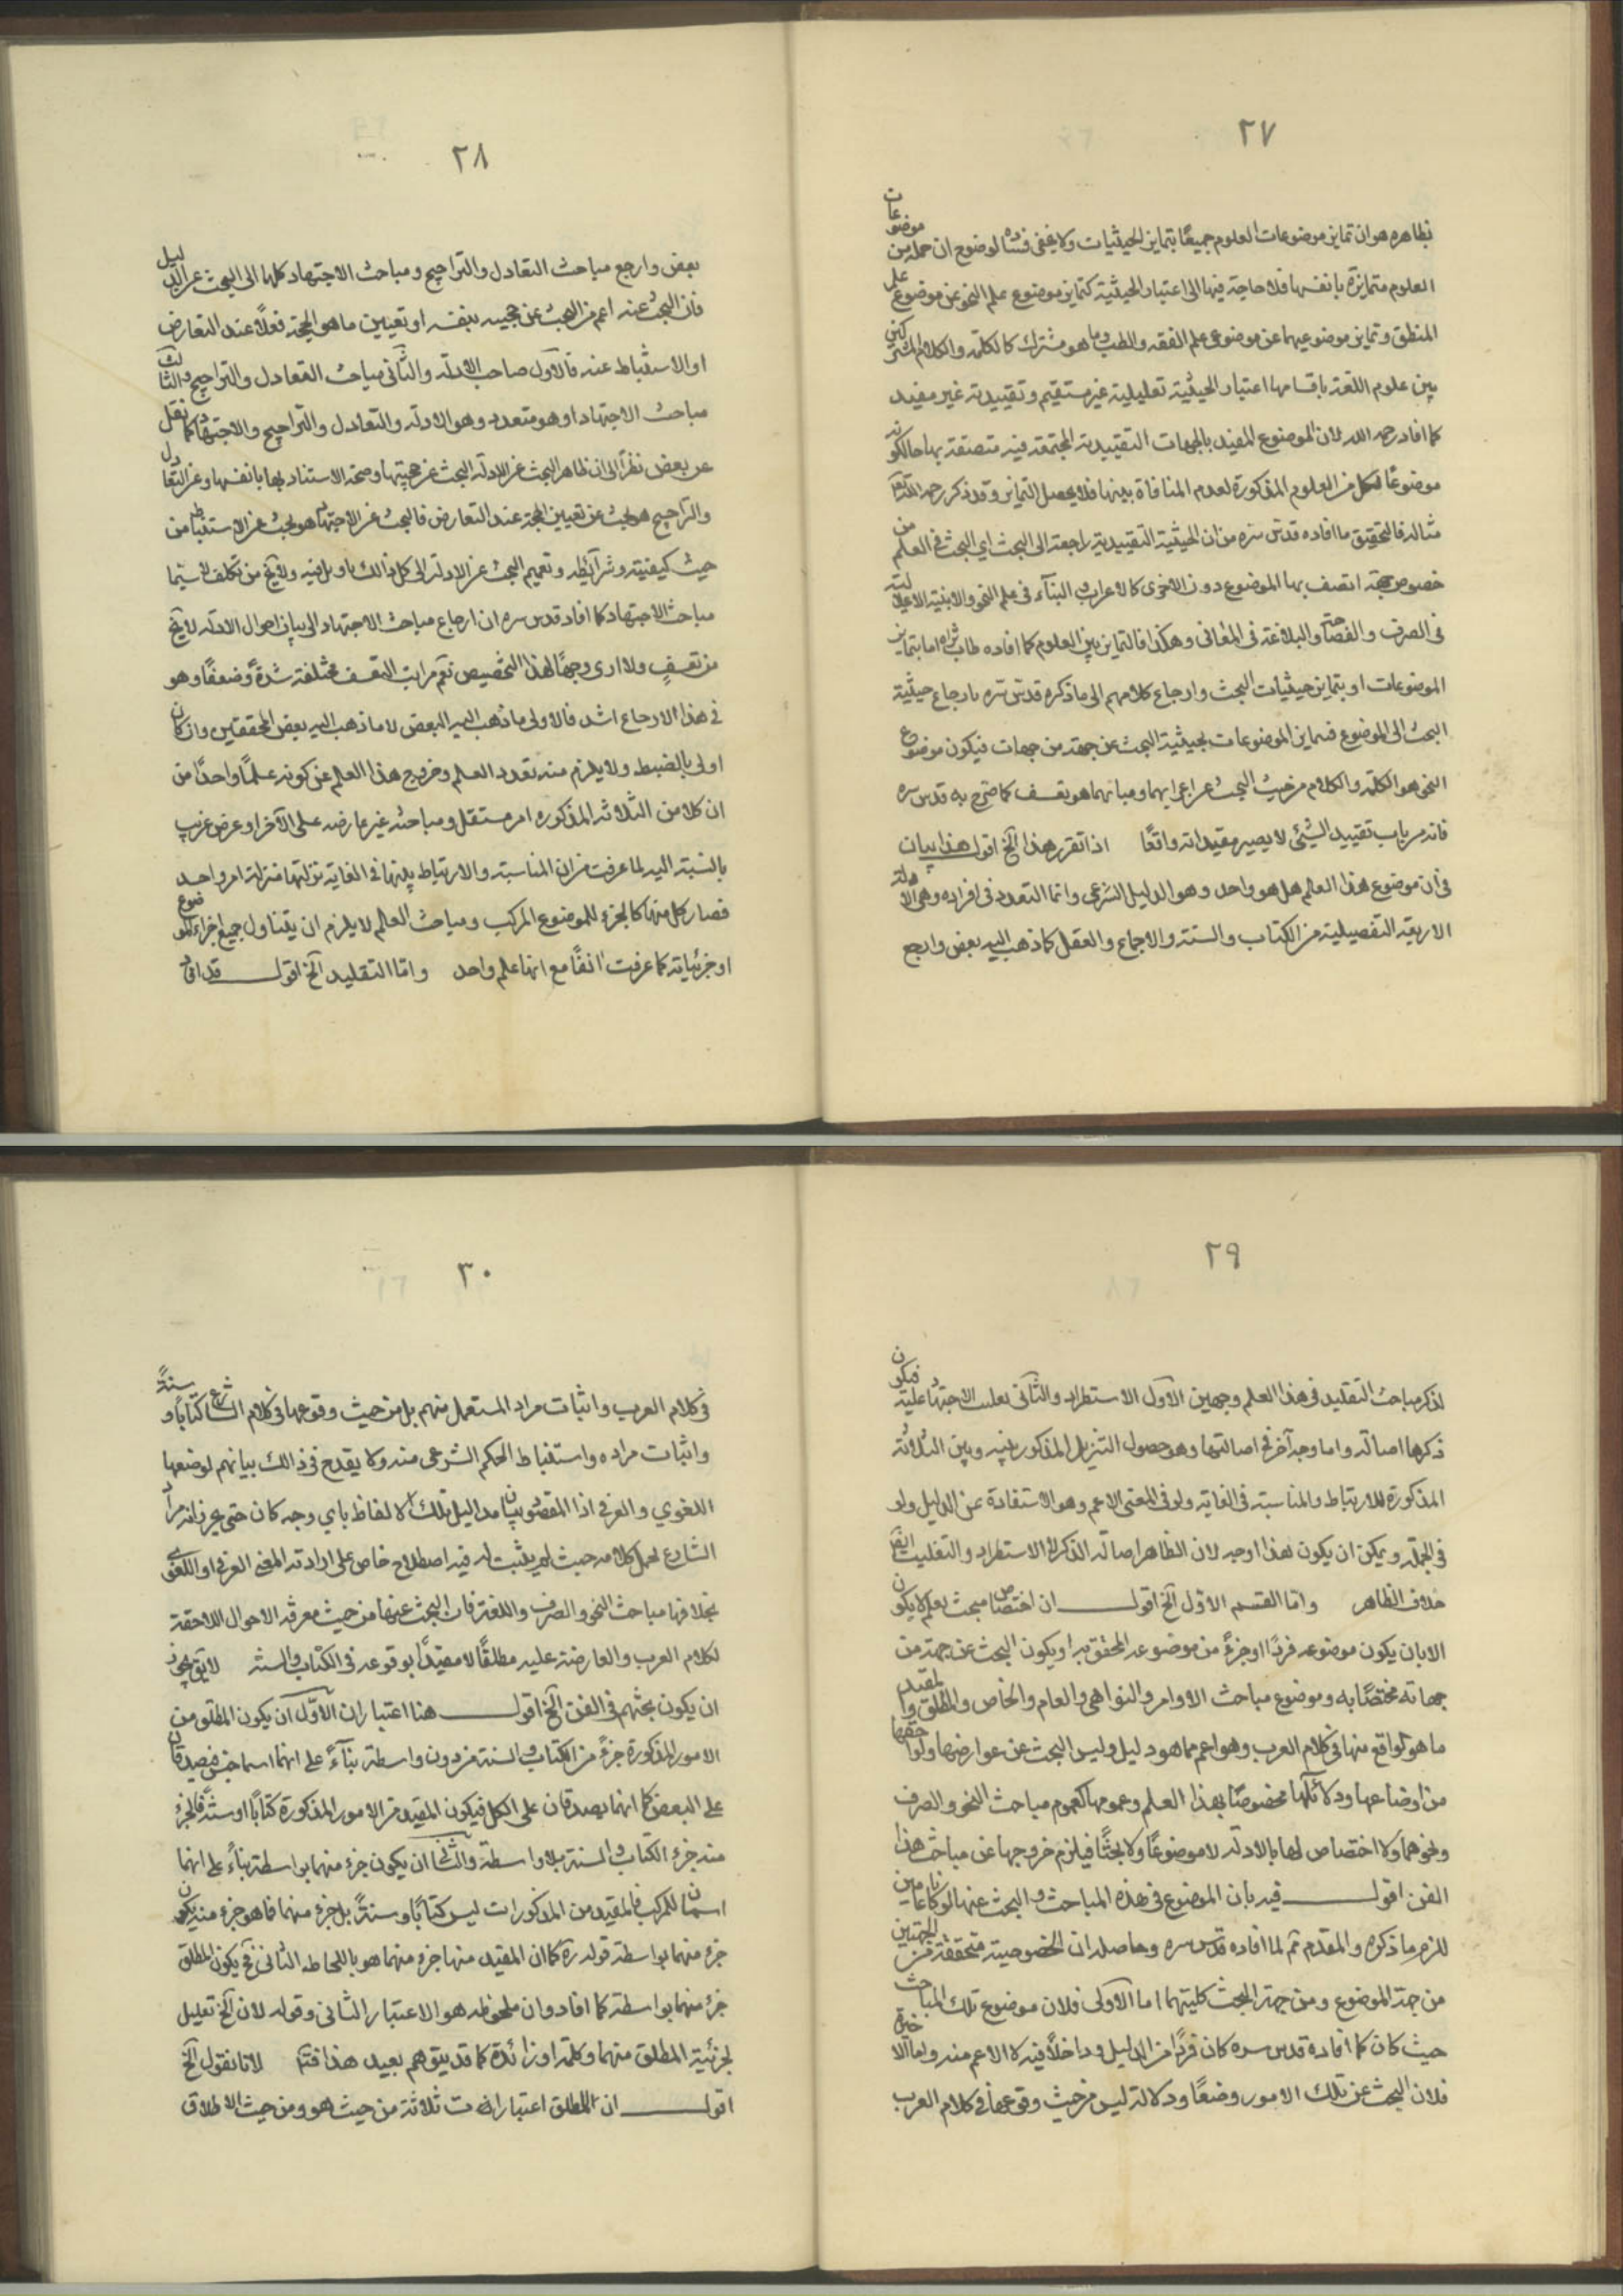 ٢٧
بظاهره هو ان تمايز موضوعات العلوم جميعًا بتمايز الحيثيات ولا يخفى فساده لوضوح ان جملة من موضوعات
العلوم متمايزة بانفسها فلا حاجة فيها الى اعتبار الحيثية كتمايز موضوع علم النحو عن موضوع علم
المنطق وتمايز موضوعيهما عن موضوعى علم الفقه والطب وما هو مشترك كالكلمة والكلام المشتركين
بين علوم اللغة باقسامها اعتبار الحيثية تعليلية غير مستقيم وتقييدية غير مفيد
كما افاد رحمه الله لان الموضوع المفيد بالجهات التقييدية المجتمعة فيه متصفة بها حالكونه
موضوعًا لكل من العلوم المذكورة لعدم المنافاة بينها فلا يحصل التمايز وقد ذكر رحمه الله تعالى
مثاله فالتحقيق ما افاده قدس سره من ان الحيثية التقييدية راجعة الى البحث اي البحث فى العلم من
خصوص جهة اتصف بها الموضوع دون الاخرى كالاعراب والبنآء فى علم النحو والابنية الاعلالية
فى الصرف والفصاحة والبلاغة فى المعانى وهكذا فالتمايز بين العلوم كما افاده طاب ثراه اما بتمايز
الموضوعات او بتمايز حيثيات البحث وارجاع كلامهم الى ما ذكره قدس سره بارجاع حيثية
البحث الى الموضوع فتمايز الموضوعات بحيثية البحث عن جهة من جهات فيكون موضوع
النحو هو الكلمة والكلام من حيث البحث عن اعرابهما وبنائهما هو تعسف كما صرح به قدس سره
فانه من باب تقييد الشيئ لا يصير مقيدا له واقعًا اذا تقرر هذا آلخ اقول هذا بيان
فى ان موضوع هذا العلم هل هو واحد وهو الدليل الشرعى وانما التعدد فى افراده وهى الادلة
الاربعة التفصيلية من الكتاب والسنة والاجماع والعقل كما ذهب اليه بعض وارجع
٢٨
بعض وارجع مباحث التعادل والتراجيح ومباحث الاجتهاد كلها الى البحث عن الدليل
فان البحث عنه اعم من البحث عن حجيته بنفسه او تعيين ما هو الحجة فعلًا عند التعارض
او الاستنباط عنه فالاول مباحث الادلة والثانى مباحث التعادل والتراجيح والثالث
مباحث الاجتهاد او هو متعدد وهو الادلة والتعادل والتراجيح والاجتهاد كما نقل
عن بعض نظرًا الى ان ظاهر البحث عن الادلة البحث عن حجيتها وصحة الاستناد بها بانفسها وعن التعادل
والتراجيح هو بحث عن تعيين الحجة عند التعارض فالبحث عن الاجتهاد هو بحث عن الاستنباط من
حيث كيفيته وشرآئطه وتعميم البحث عن الادلة الى كل ذالك باويل فيه ولا يخ من تكلف لا سيّما
مباحث الاجتهاد كما افاد قدس سره ان ارجاع مباحث الاجتهاد الى بيان احوال الادلة لا يخ
من تعسفٍ ولا ارى وجهًا لهذا التخصيص نعم مراتب التعسف مختلفة شدةً وضعفًا وهو
فى هذا الارجاع اشد فالاولى ما ذهب اليه البعض لا ما ذهب اليه بعض المحققين وان كان
اولى بالضبط ولا يلزم منه تعدد العلم وخروج هذا العلم عن كونه علمًا واحدًا من
ان كلا من الثلاثة المذكوره امر مستقل ومباحثه غير عارضه على الآخر او عرض غريب
بالنسبة اليه لما عرفت من ان المناسبة والارتباط بينها فى الغاية نزلتها منزلة امر واحد
فصار كل منها كالجزء للموضوع المركب ومباحث العلم لا يلزم ان يتناول جميع اجزاء الموضوع
او جزئياته كما عرفت انفًا مع انها علم واحد واما التقليد آلخ اقول قد افاد
٢٩
لذكر مباحث التقليد فى هذا العلم وجهين الاول الاستطراد والثانى تعليب الاجتهاد عليه فيكون
ذكرها اصالة واما وجه آخر فى اصالتها وهو حصول التنزيل المذكور بينه وبين الثلاثة
المذكورة للارتباط والمناسبة فى الغاية ولو فى المعنى الاعم وهو الاستفادة عن الدليل ولو
فى الجملة ويمكن ان يكون هذا اوجه لان الظاهر اصالة الذكر لا الاستطراد والتغليب ايضًا
خلاف الظاهر واما القسم الاول آلخ اقول ان اختصاص مبحث بعلم لا يكون
الا بان يكون موضوعه فردًا او جزءً من موضوعه المحقق به او يكون البحث عن جهة من
جهاته مختصًا به وموضوع مباحث الاوامر والنواهى والعام والخاص والمطلق والمقيد
ما هو الواقع منها فى كلام العرب وهو اعم مما هو دليل وليس البحث عن عوارضها ولواحقها
من اوضاعها ودلائلها مخصوصًا بهذا العلم وعمومها كعموم مباحث النحو والصرف
ونحوهما ولا اختصاص لها بالادلة لا موضوعًا ولا بحثًا فيلزم خروجها عن مباحث هذا
الفن اقول فيه بان الموضوع فى هذه المباحث والبحث عنها لو كانا عامين
للزم ما ذكره والمقدم ثم لما افاده قدس سره وحاصله ان الخصوصية متحققة من الجهتين
من جهة الموضوع ومن جهة البحث كليتهما اما الاولى فلان موضوع تلك المباحث
حيث كان كما افاده قدس سره كان فردًا من الدليل وداخلًا فيه لا الاعم منه واما الاخرى
فلان البحث عن تلك الامور وضعًا ودلالة ليس من حيث وقوعها فى كلام العرب
٣٠
فى كلام العرب واثبات مراد المستعمل منهم بل من حيث وقوعها فى كلام الشارع كتابًا او سنةً
واثبات مراده واستنباط الحكم الشرعى منه ولا يقدح فى ذالك بيانهم لوضعها
اللغوي والعرفى اذا المقصود بيان مداليل تلك الالفاظ باي وجه كان حتى يحرز انه مراد
الشارع لحمل كلامه حيث لم يثبت له فيه اصطلاح خاص على ارادته المعنى العرفى او اللغوى
بخلافها مباحث النحو والصرف واللغة فان البحث عنها من حيث معرفة الاحوال اللاحقة
لكلام العرب والعارضة عليه مطلقًا لا مقيدًا بوقوعه فى الكتاب والسنة لا يق يجوز
ان يكون بحثهم فى الفن آلخ اقول هنا اعتباران الاول ان يكون المطلق من
الامور المذكورة جزءً من الكتاب والسنة من دون واسطة بنآءً على انهما اسما جنس فيصدقان
على البعض كما انهما يصدقان على الكل فيكون المقيد من الامور المذكورة كتابًا او سنةً فالجزء
منه جزء الكتاب والسنة بلا واسطة والثانى ان يكون جزء منهما بواسطة بنآءً على انهما
اسمان للمركب فالمقيد من المذكورات ليس كتابًا وسنةً بل جزء منهما فما هو جزء منه يكون
جزء منهما بواسطة قوله ره كما ان المقيد منها جزء منهما هو باللحاظ الثانى فح يكون المطلق
جزء منهما بواسطة كما افاد وان ملحوظه هو الاعتبار الثانى وقوله لان آلخ تعليل
لجزئية المطلق منهما وكلمة او زائدة كما قد يتوهم بعيد هذا فتم لانا نقول آلخ
اقول ان للمطلق اعتبارات ثلاثة من حيث هو ومن حيث الاطلاق